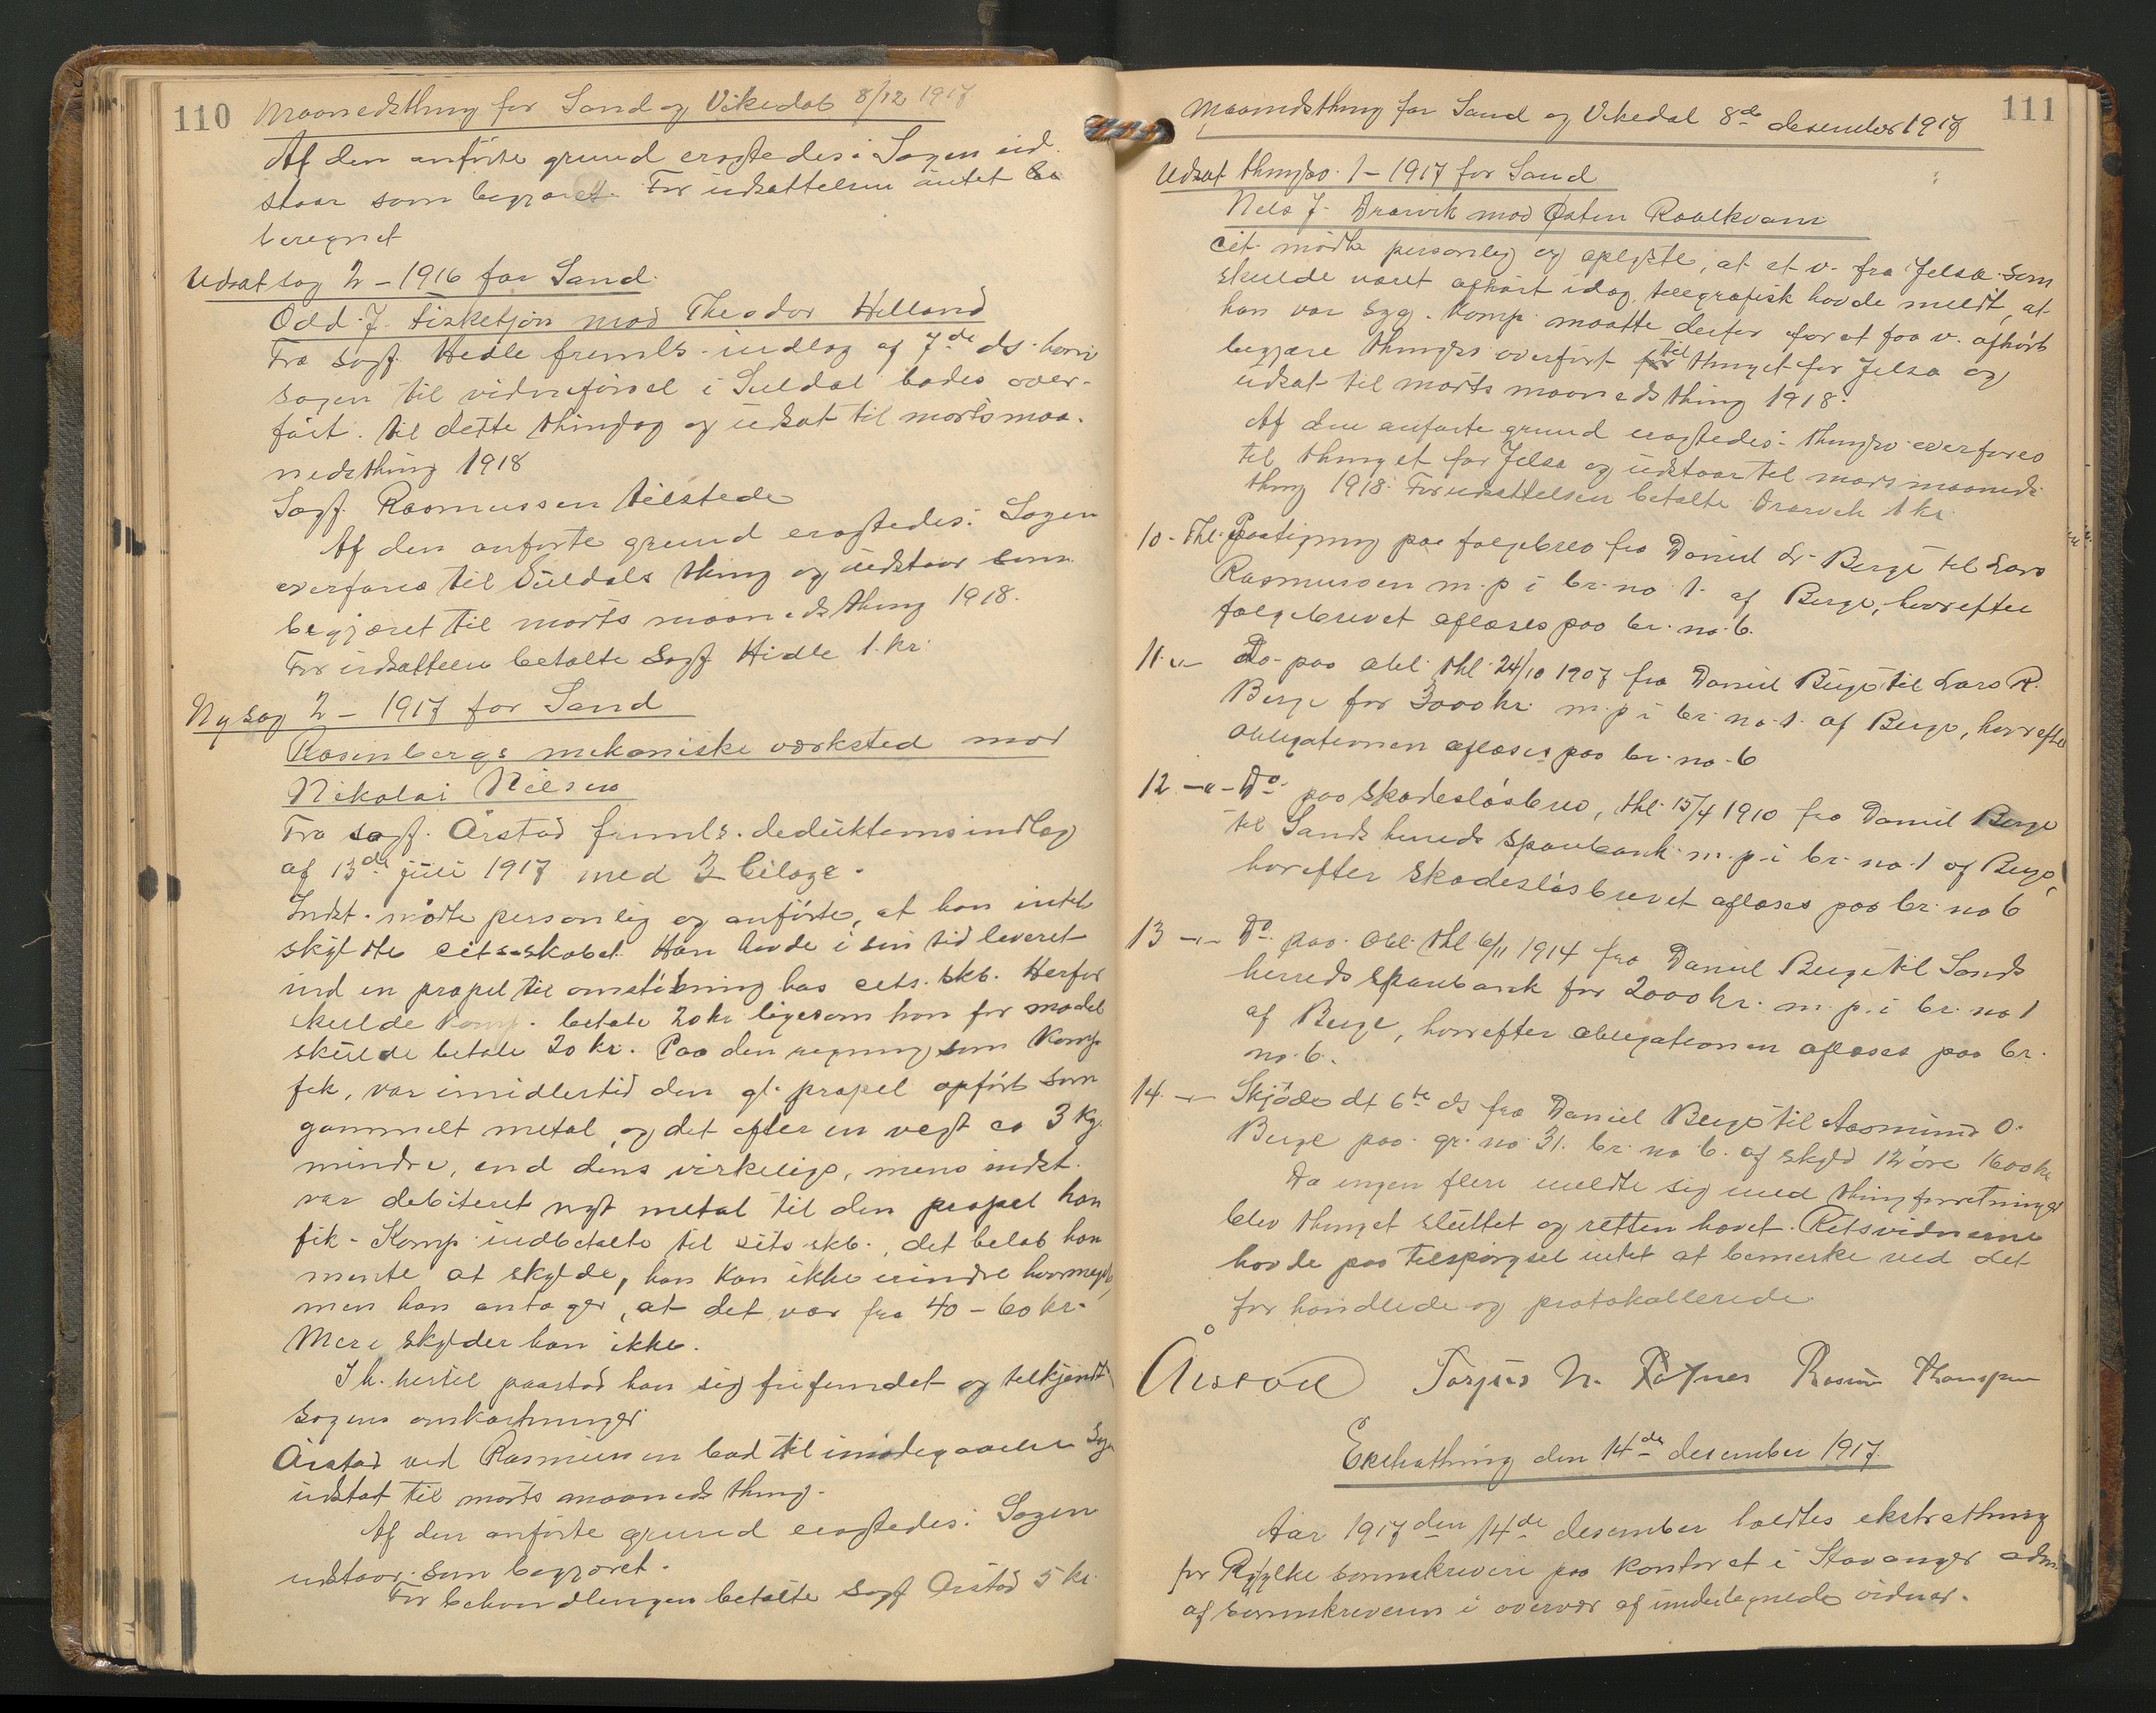 110 Maanedsthing for Sand og Vikedal 8/12 1917
Af den anførte grund eragtedes: Sagen ud-
staar som begjæret. For udsættelsen intet be
beregnet
Udsat sag 2 – 1916 for Sand.
Odd J. Fisketjøn mod Theodor Helland
Fra sagf. Hidle fremls. indlæg af 7de ds. hvori
sagen til vidneførsel i Suldal bades over-
ført til dette thinglag og udsat til marts maa-
nedsthing 1918
Sagf. Rasmussen tilstede
Af den anførte grund eragtedes: Sagen
overføres til Suldals thing og udstaar som
begjæret til marts maanedsthing 1918.
For udsættelsen betalte Sagf Hidle 1 kr.
Ny sag 2 – 1917 for Sand
Rosenbergs mekaniske værksted mod
Nikolai Nilsen
Fra sagf. Årstad fremls. deduktionsindlæg
af 13de juli 1917 med 3 bilage.
Indst. mødte personlig og anførte, at han intet
skyldte cits-skabet. Han havde i sin tid leveret
ind en propel til omstøbning hos cits. skb. Herfor
skulde komp. betale 20 kr ligesom han for model
skulde betale 20 kr. Paa den regning som komp.
fik, var imidlertid den gl. propel opført som
gammelt metal, og det efter en vegt ca 3 kg.
mindre, end dens virkelige, mens indst.
var debiteret nyt metal til den propel han
fik. Komp indbetalte til cits skb., det beløb han
mente at skylde, han kan ikke erindre hvormeget,
men han antager, at det var fra 40 – 60 kr.
Mere skylder han ikke.
I h. hertil paastod han sig frifundet og tilkjendt
sagens omkostninger
Årstad ved Rasmussen bad til imødegaaelse Sagen
udsat til marts maanedsthing.
Af den anførte grund eragtedes: Sagen
udstaar som begjæret.
For behandlingen betalte Sagf Årstad 5 kr.
Maanedsthing for Sand og Vikedal 8de desember 1917 111
Udsat thingsv. 1 – 1917 for Sand
Nels J. Drarvik mod Østen Raalkvam
Cit. mødte personlig og oplyste, at et v. fra Jelsa som
skulde været afhørt idag, telegrafisk havde meldt, at
han var syg. Komp. maatte derfor for at faa v. afhørt
begjære thingsv. overført for til thinget for Jelsa og
udsat til marts maanedsthing 1918.
Af den anførte grund eragtedes: thingsv. overføres
til thinget for Jelsa og udstaar til mars maaneds-
thing 1918. For udsættelsen betalte Drarvik 1 kr.
10 - Thl. Paategning paa følgebrev fra Daniel Berge til Lars
Rasmussen m. p i br. no 1. af Berge, hvorefter
følgebrevet aflæses paa br. no. 6.
11 -"- do. paa obl. thl. 24/10 1907 fra Daniel Berge til Lars R.
Berge for 3000 kr. m. p i br. no. 1. af Berge, hvorefter
obligationen aflæses paa br. no. 6
12 -"- Do. paa skadesløsbrev, thl. 15/4 1910 fra Daniel Berge
til Sands herreds sparebank m. p. i br. no. 1 af Berge,
hvorefter skadesløsbrevet aflæses paa br. no 6
13 -"- Do. paa obl. thl 6/11 1914 fra Daniel Berge til Sands
herreds sparebank for 2000 kr. m. p. i br. no 1
af Berge, hvorefter obligationen aflæses paa br.
no. 6.
14 -"- Skjøde dt 6te ds fra Daniel Berge til Aasmund O.
Berge paa gr. no 31. br. no 6. af skyld 12 øre 1600 kr
Da ingen flere meldte sig med thingforretninger
blev thinget sluttet og retten hævet. Retsvidnerne
havde paa tilspørgsel intet at bemerke ved det
forhandlede og protokollerede
Årstad Torjus N. Rasmus Thompsen
Ekstrathing den 14de desember 1917
Aar 1917 den 14de desember holdtes ekstrathing
for Ryfylke sorenskriveri paa kontoret i Stavanger adm.
af sorenskriveren i overvær af undertegnede vidner.